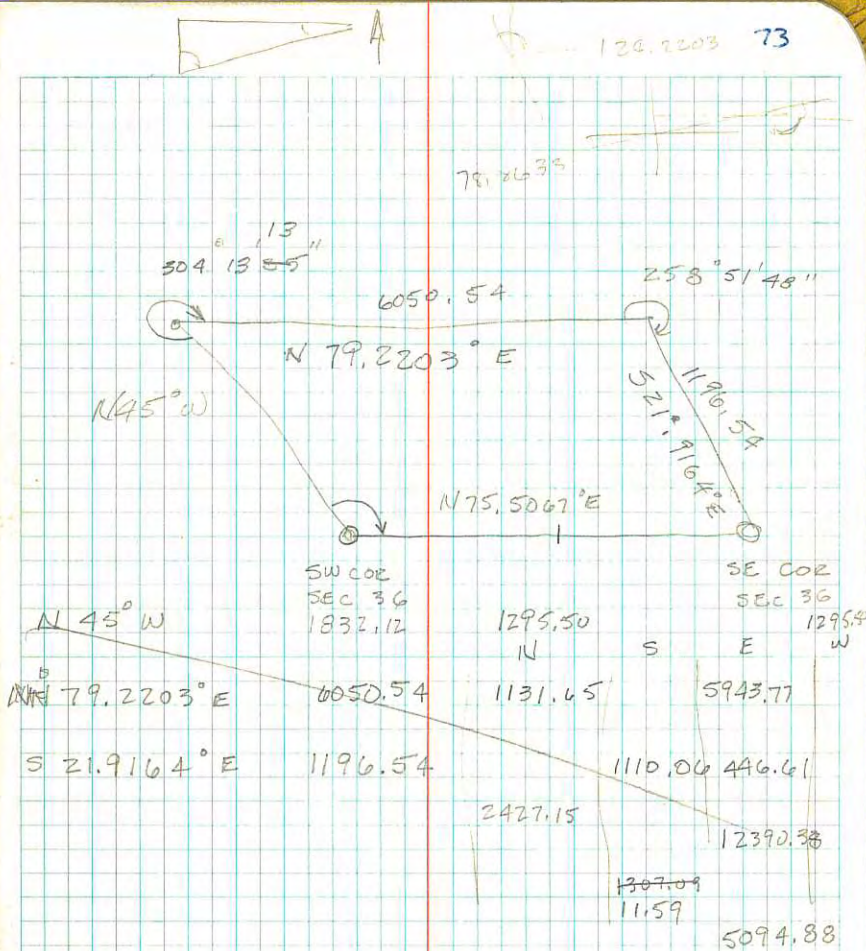 124.2203 73
304° 13' 13"
258° 51' 48"
6050.54
N 79.2203° E
N 45° W
1196.54
S 21°.9164° E
N 75.5067° E
SW COR
SEC 36
SE COR
SEC 36
N 45° W 1832.12 1295.50
N S E W
N 79.2203° E 6050.54 1131.65 5943.77
S 21.9164° E 1196.54 1110.06 446.61
2427.15
12390.38
1307.09
11.59
5094.88